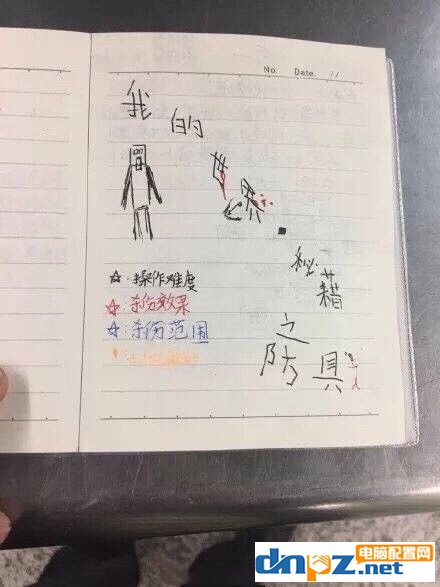 No. Date. / /
我的世界·
秘藉之防具
☆:操作难度
☆:杀伤效果
☆:杀伤范围
电脑配置网
dnpz.net